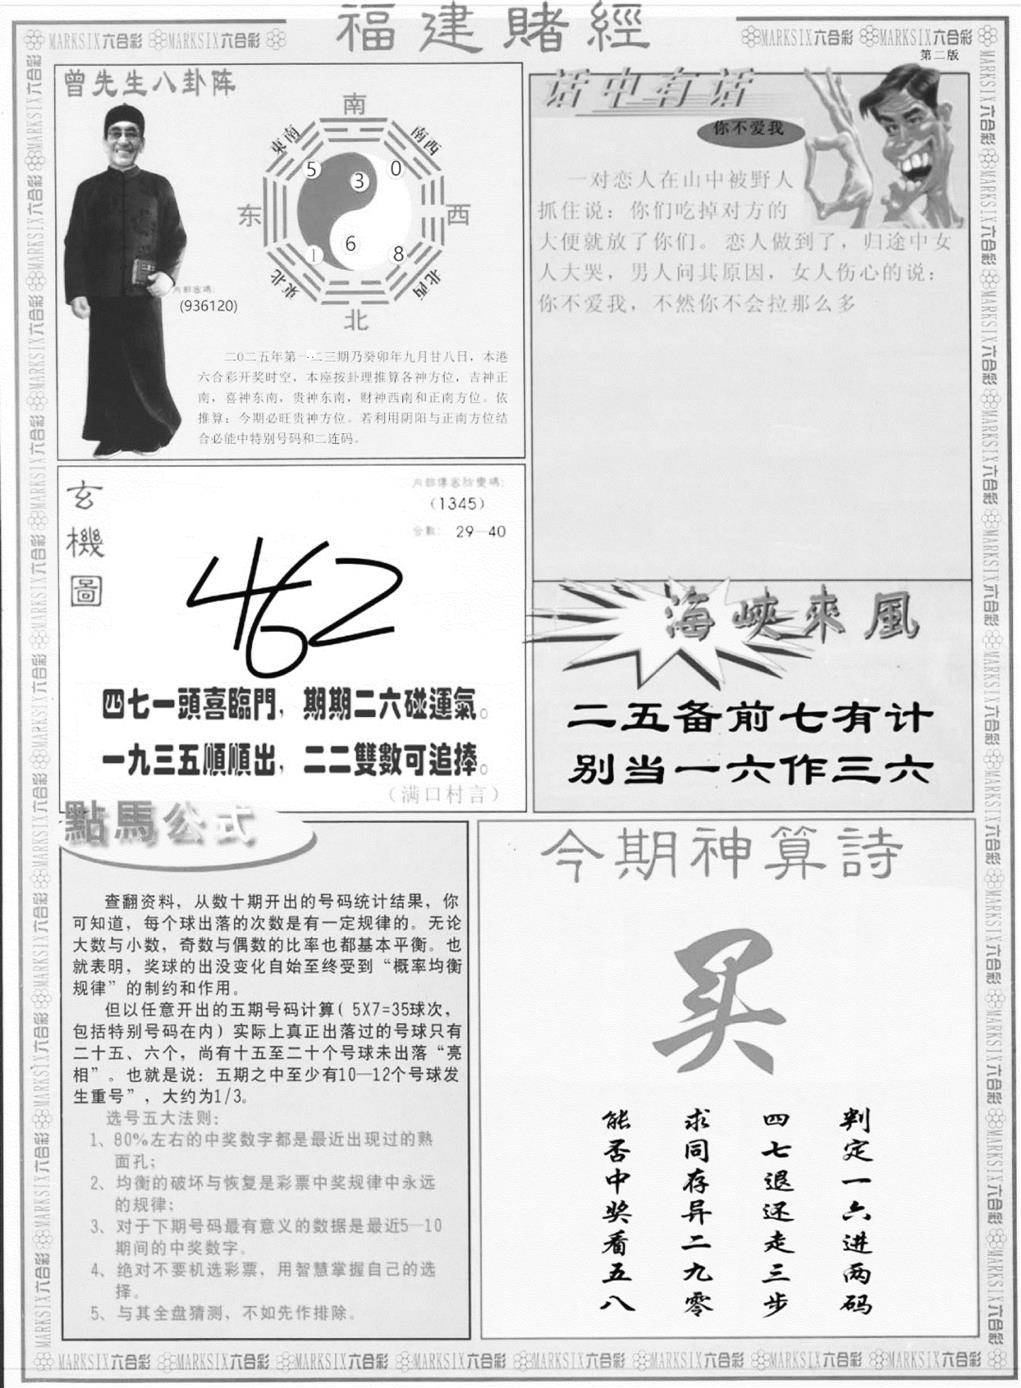 福建賭經
MARKSIX六合彩 MARKSIX六合彩
MARKSIX六合彩 MARKSIX六合彩
第二版
曾先生八卦阵
南
東南
南西
5
3
0
东
西
1
6
8
東北
北西
北
内部密碼:
(936120)
二0二五年第一二三期乃癸卯年九月廿八日，本港
六合彩开奖时空，本座按卦理推算各神方位，吉神正
南，喜神东南，贵神东南，财神西南和正南方位。依
推算：今期必旺贵神方位。若利用阴阳与正南方位结
合必能中特别号码和二连码。
话中有话
你不爱我
一对恋人在山中被野人
抓住说：你们吃掉对方的
大便就放了你们。恋人做到了，归途中女
人大哭，男人问其原因，女人伤心的说：
你不爱我，不然你不会拉那么多
玄機圖
内部傳密防變碼:
(1345)
合數: 29—40
462
四七一頭喜臨門，期期二六碰運氣。
一九三五順順出，二二雙數可追捧。
（满口村言）
海峽來風
二五备前七有计
别当一六作三六
點馬公式
查翻资料，从数十期开出的号码统计结果，你
可知道，每个球出落的次数是有一定规律的。无论
大数与小数，奇数与偶数的比率也都基本平衡。也
就表明，奖球的出没变化自始至终受到“概率均衡
规律”的制约和作用。
但以任意开出的五期号码计算( 5X7=35球次，
包括特别号码在内) 实际上真正出落过的号球只有
二十五、六个，尚有十五至二十个号球未出落“亮
相”。也就是说：五期之中至少有10—12个号球发
生重号”，大约为1/3。
选号五大法则：
1、80%左右的中奖数字都是最近出现过的熟
面孔；
2、均衡的破坏与恢复是彩票中奖规律中永远
的规律；
3、对于下期号码最有意义的数据是最近5—10
期间的中奖数字。
4、绝对不要机选彩票，用智慧掌握自己的选
择。
5、与其全盘猜测，不如先作排除。
今期神算詩
买
判定一六进两码
四七退还走三步
求同存异二九零
能否中奖看五八
MARKSIX六合彩 MARKSIX六合彩 MARKSIX六合彩 MARKSIX六合彩 MARKSIX六合彩 MARKSIX六合彩 MARKSIX六合彩 MARKSIX六合彩